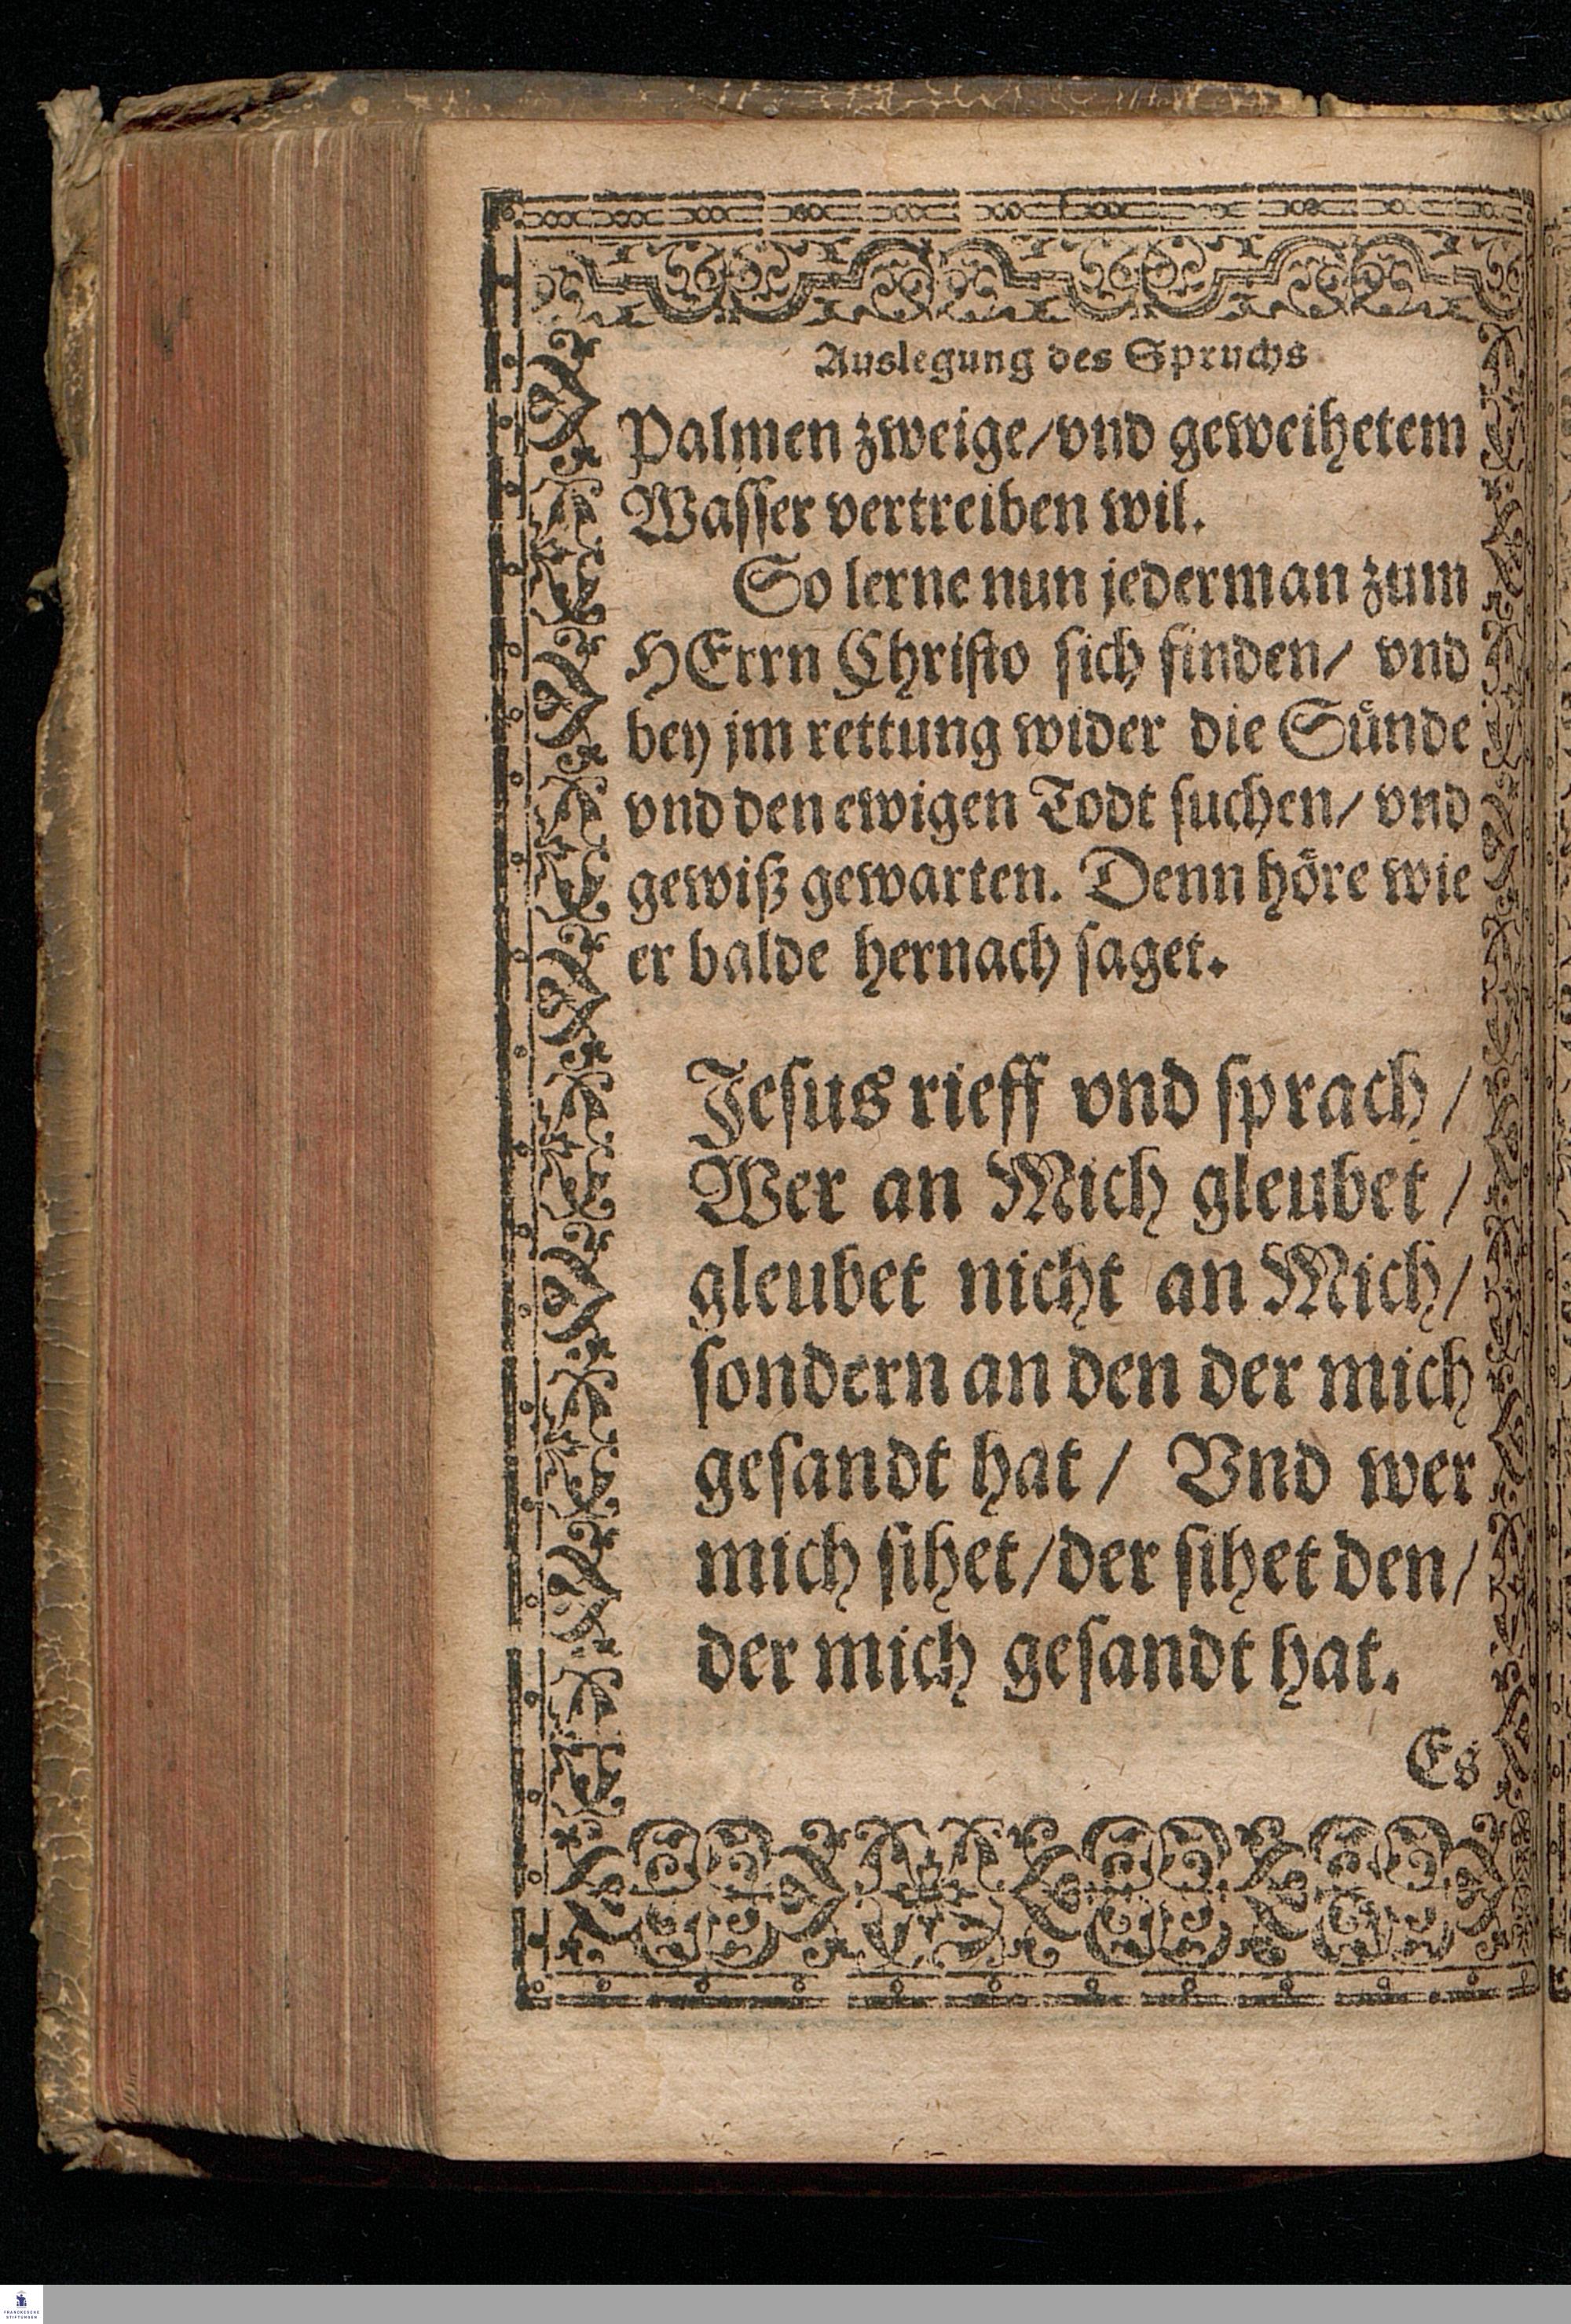 Auslegung des Spruchs
Palmen zweige/vnd geweihetem
Wasser vertreiben wil.
So lerne nun jederman zum
HErrn Christo sich finden/ vnd
bey jm rettung wider die Sünde
vnd den ewigen Todt suchen/ vnd
gewiß gewarten. Denn höre wie
er balde hernach saget.
Jesus rieff vnd sprach/
Wer an Mich gleubet/
gleubet nicht an Mich/
sondern an den der mich
gesandt hat/ Vnd wer
mich sihet/der sihet den/
der mich gesandt hat.
Es
FRANCKESCHE
STIFTUNGEN